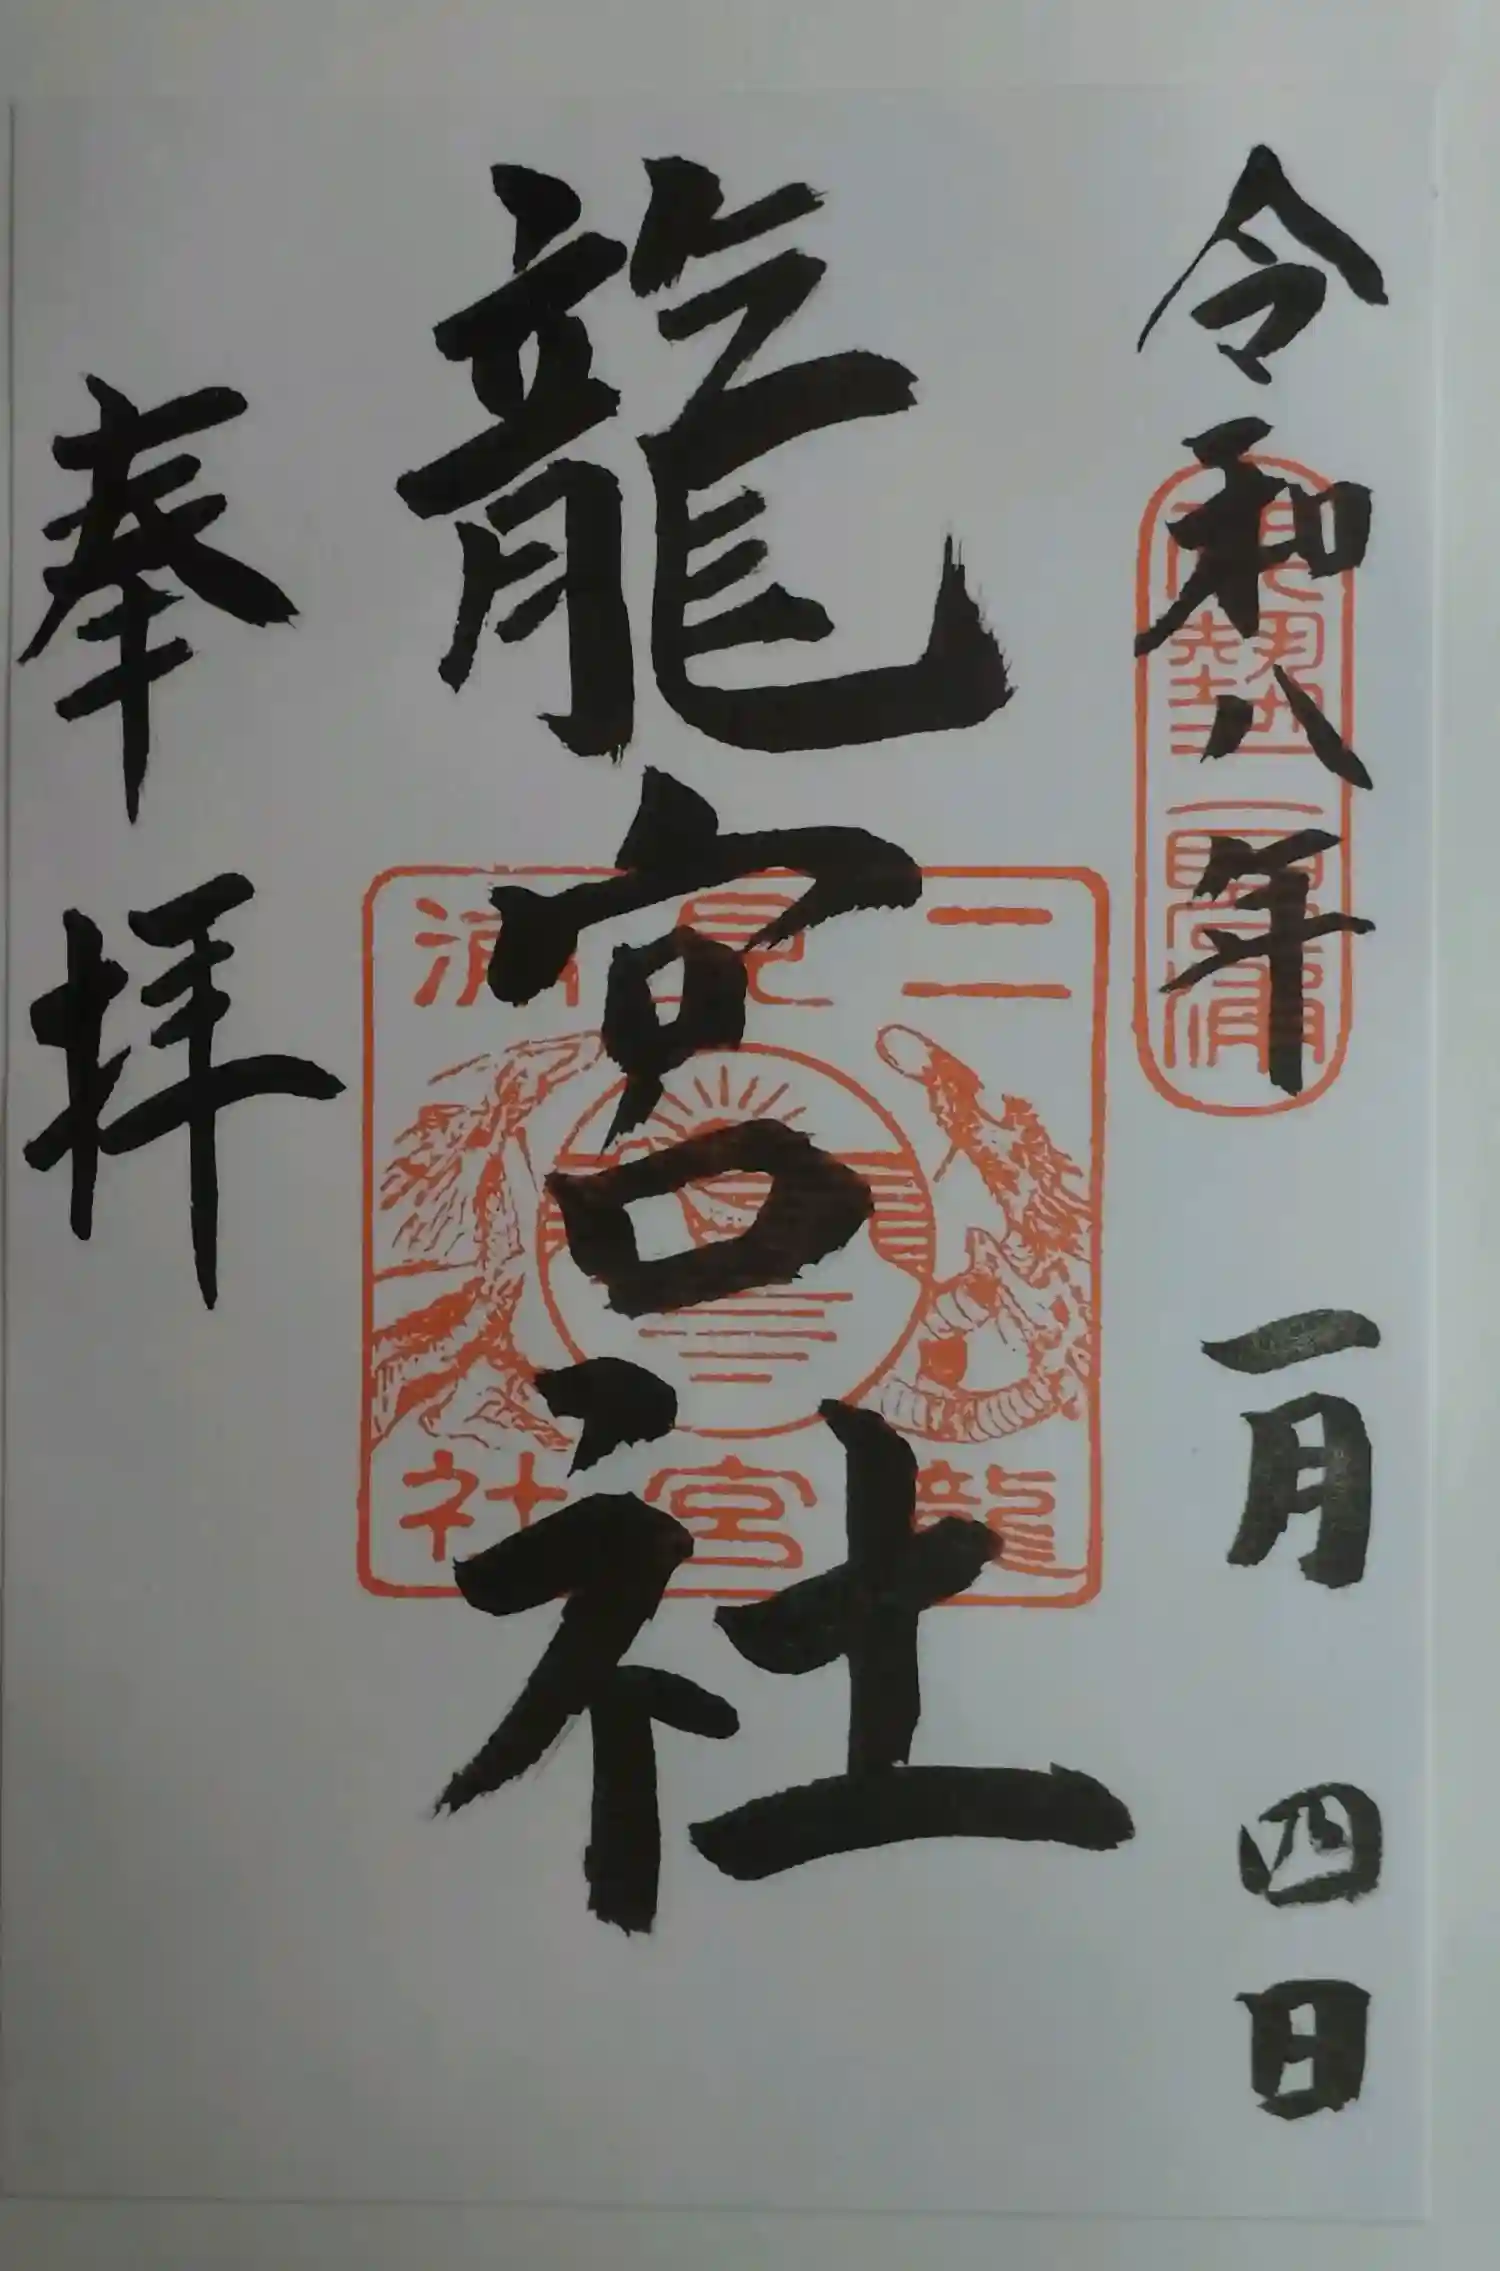 令和八年 一月 四日
伊勢二見浦
龍宮社
二見浦
龍宮社
奉拝